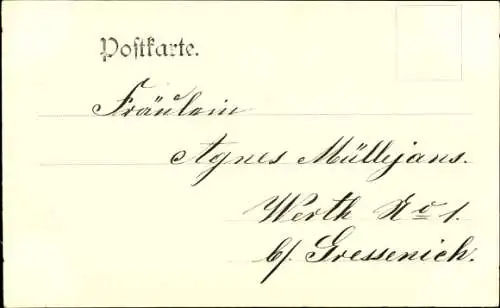 Postkarte.
Fräulein
Agnes Müllejans.
Werth No 1.
b/ Gressenich.